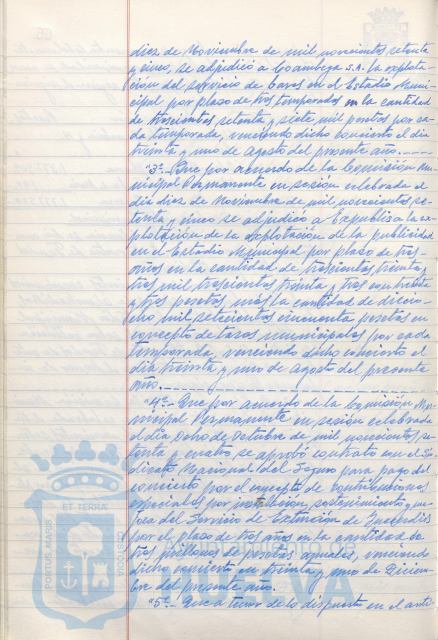 diez de Noviembre de mil novecientos setenta
y cinco, se adjudicó a Coambega S.A. la explota-
ción del servicio de bares en el Estadio Muni-
cipal por plazo de tres temporadas en la cantidad
de trescientas setenta y siete mil pesetas por ca-
da temporada, venciendo dicho concierto el día
treinta y uno de agosto del presente año.
"3º.- Que por acuerdo de la Comisión Mu-
nicipal Permanente en sesión celebrada el
día diez de Noviembre de mil novecientos se-
tenta y cinco se adjudicó a Expublis la ex-
plotación de la explotación de la publicidad
en el Estadio Municipal por plazo de tres
años en la cantidad de trescientas treinta y
tres mil trescientas treinta y tres con treinta
y tres pesetas, más la cantidad de diecio-
cho mil setecientas cincuenta pesetas en
concepto de tasas municipales por cada
temporada, venciendo dicho concierto el
día treinta y uno de agosto del presente
año.
"4º.- Que por acuerdo de la Comisión Mu-
nicipal Permanente en sesión celebrada
el día ocho de Octubre de mil novecientos se-
tenta y cuatro, se aprobó contrato con el Sin-
dicato Nacional del Seguro para pago del
concierto por el concepto de contribuciones
especiales por instalación, sostenimiento y me-
jora del Servicio de Extinción de Incendios
por el plazo de tres años en la cantidad de
tres millones de pesetas anuales, venciendo
dicho concierto en treinta y uno de Diciem-
bre del presente año.
"5º.- Que a tenor de lo dispuesto en el artí-
PORTUS MARIS
ET TERRÆ
CUSTODIA
HUELVA